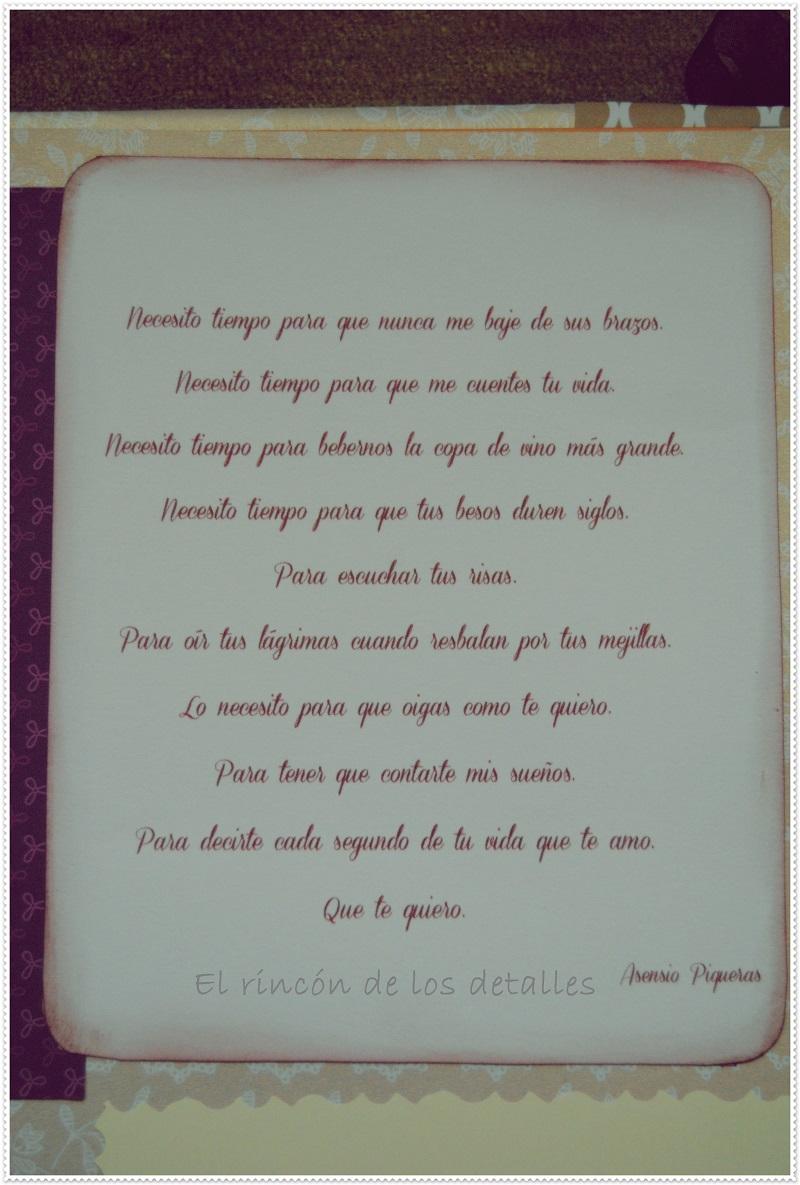 Necesito tiempo para que nunca me baje de sus brazos.
Necesito tiempo para que me cuentes tu vida.
Necesito tiempo para bebernos la copa de vino más grande.
Necesito tiempo para que tus besos duren siglos.
Para escuchar tus risas.
Para oír tus lágrimas cuando resbalan por tus mejillas.
Lo necesito para que oigas como te quiero.
Para tener que contarte mis sueños.
Para decirte cada segundo de tu vida que te amo.
Que te quiero.
Asensio Piqueras
El rincón de los detalles